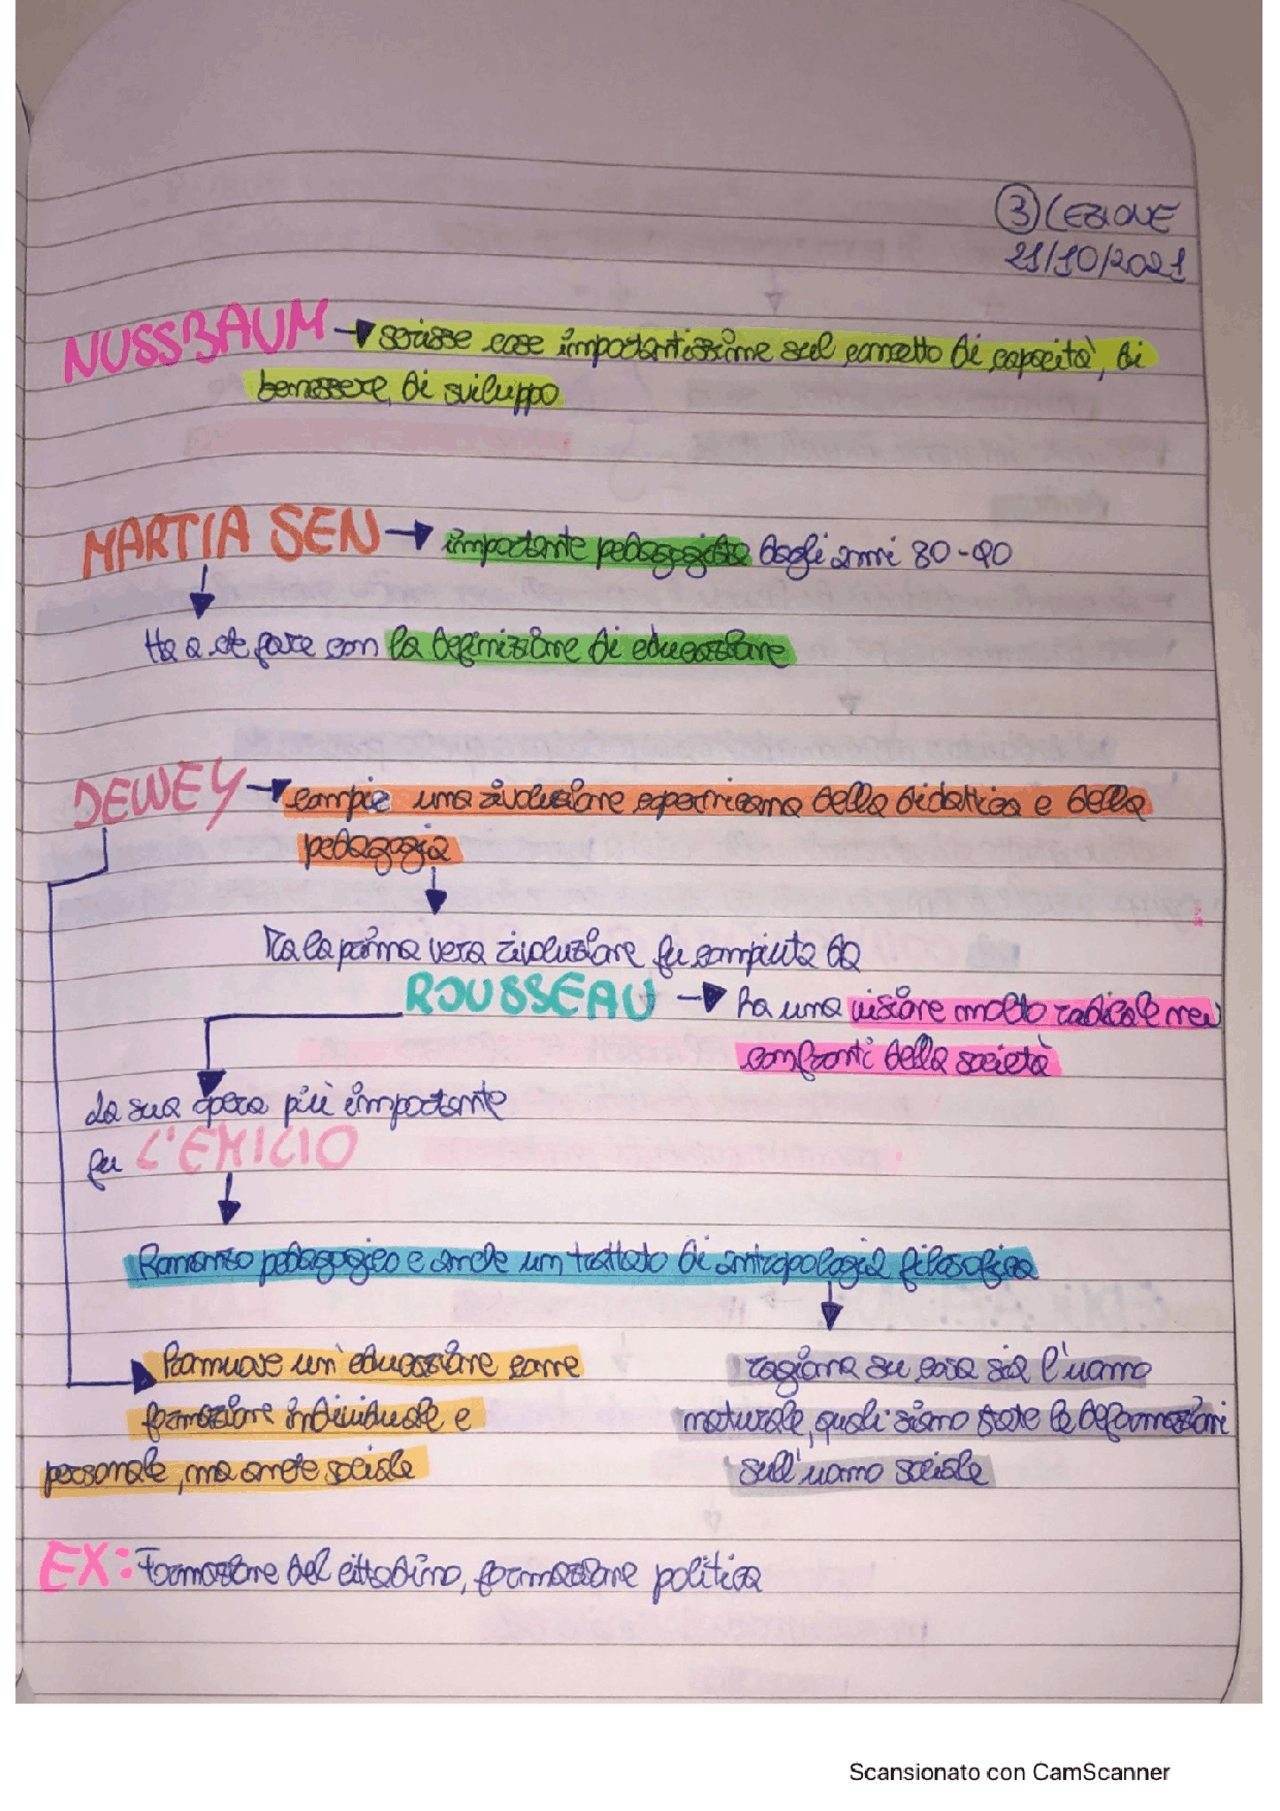 ③ LEZIONE
21/10/2021
NUSSBAUM → scrisse cose importantissime sul concetto di capacità, di
benessere, di sviluppo
MARTIA SEN → importante pedagogista degli anni 80-90
Ha a che fare con la definizione di educazione
DEWEY → compie una rivoluzione copernicana della didattica e della
pedagogia
Ma la prima vera rivoluzione fu compiuta da
ROUSSEAU → ha una visione molto radicale nei
confronti della società
La sua opera più importante
fu L'EMILIO
Romanzo pedagogico e anche un trattato di antropologia filosofica
Promuove un'educazione come
formazione individuale e
personale, ma anche sociale
ragiona su cosa sia l'uomo
naturale, quali siano state le deformazioni
sull'uomo sociale
EX: Formazione del cittadino, formazione politica
Scansionato con CamScanner